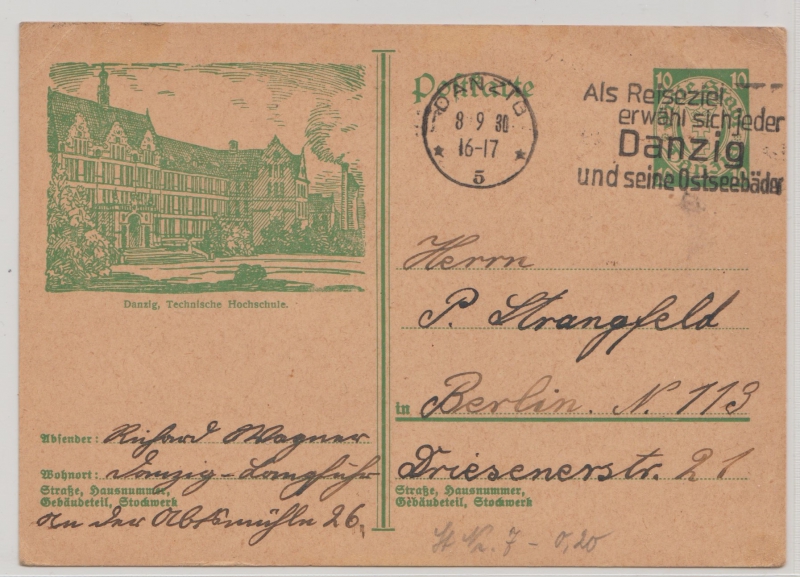 Postkarte
10 10
DANZIG
8 9 30
16-17
* *
5
Als Reiseziel
erwähl sich jeder
Danzig
und seine Ostseebäder
Danzig, Technische Hochschule.
Herrn
P. Strangfeld
in Berlin. N. 113
Driesenerstr. 21
Straße, Hausnummer,
Gebäudeteil, Stockwerk
Absender: Richard Wagner
Wohnort: Danzig-Langfuhr
Straße, Hausnummer,
Gebäudeteil, Stockwerk
An der Abtsmühle 26.
7 - 0,20